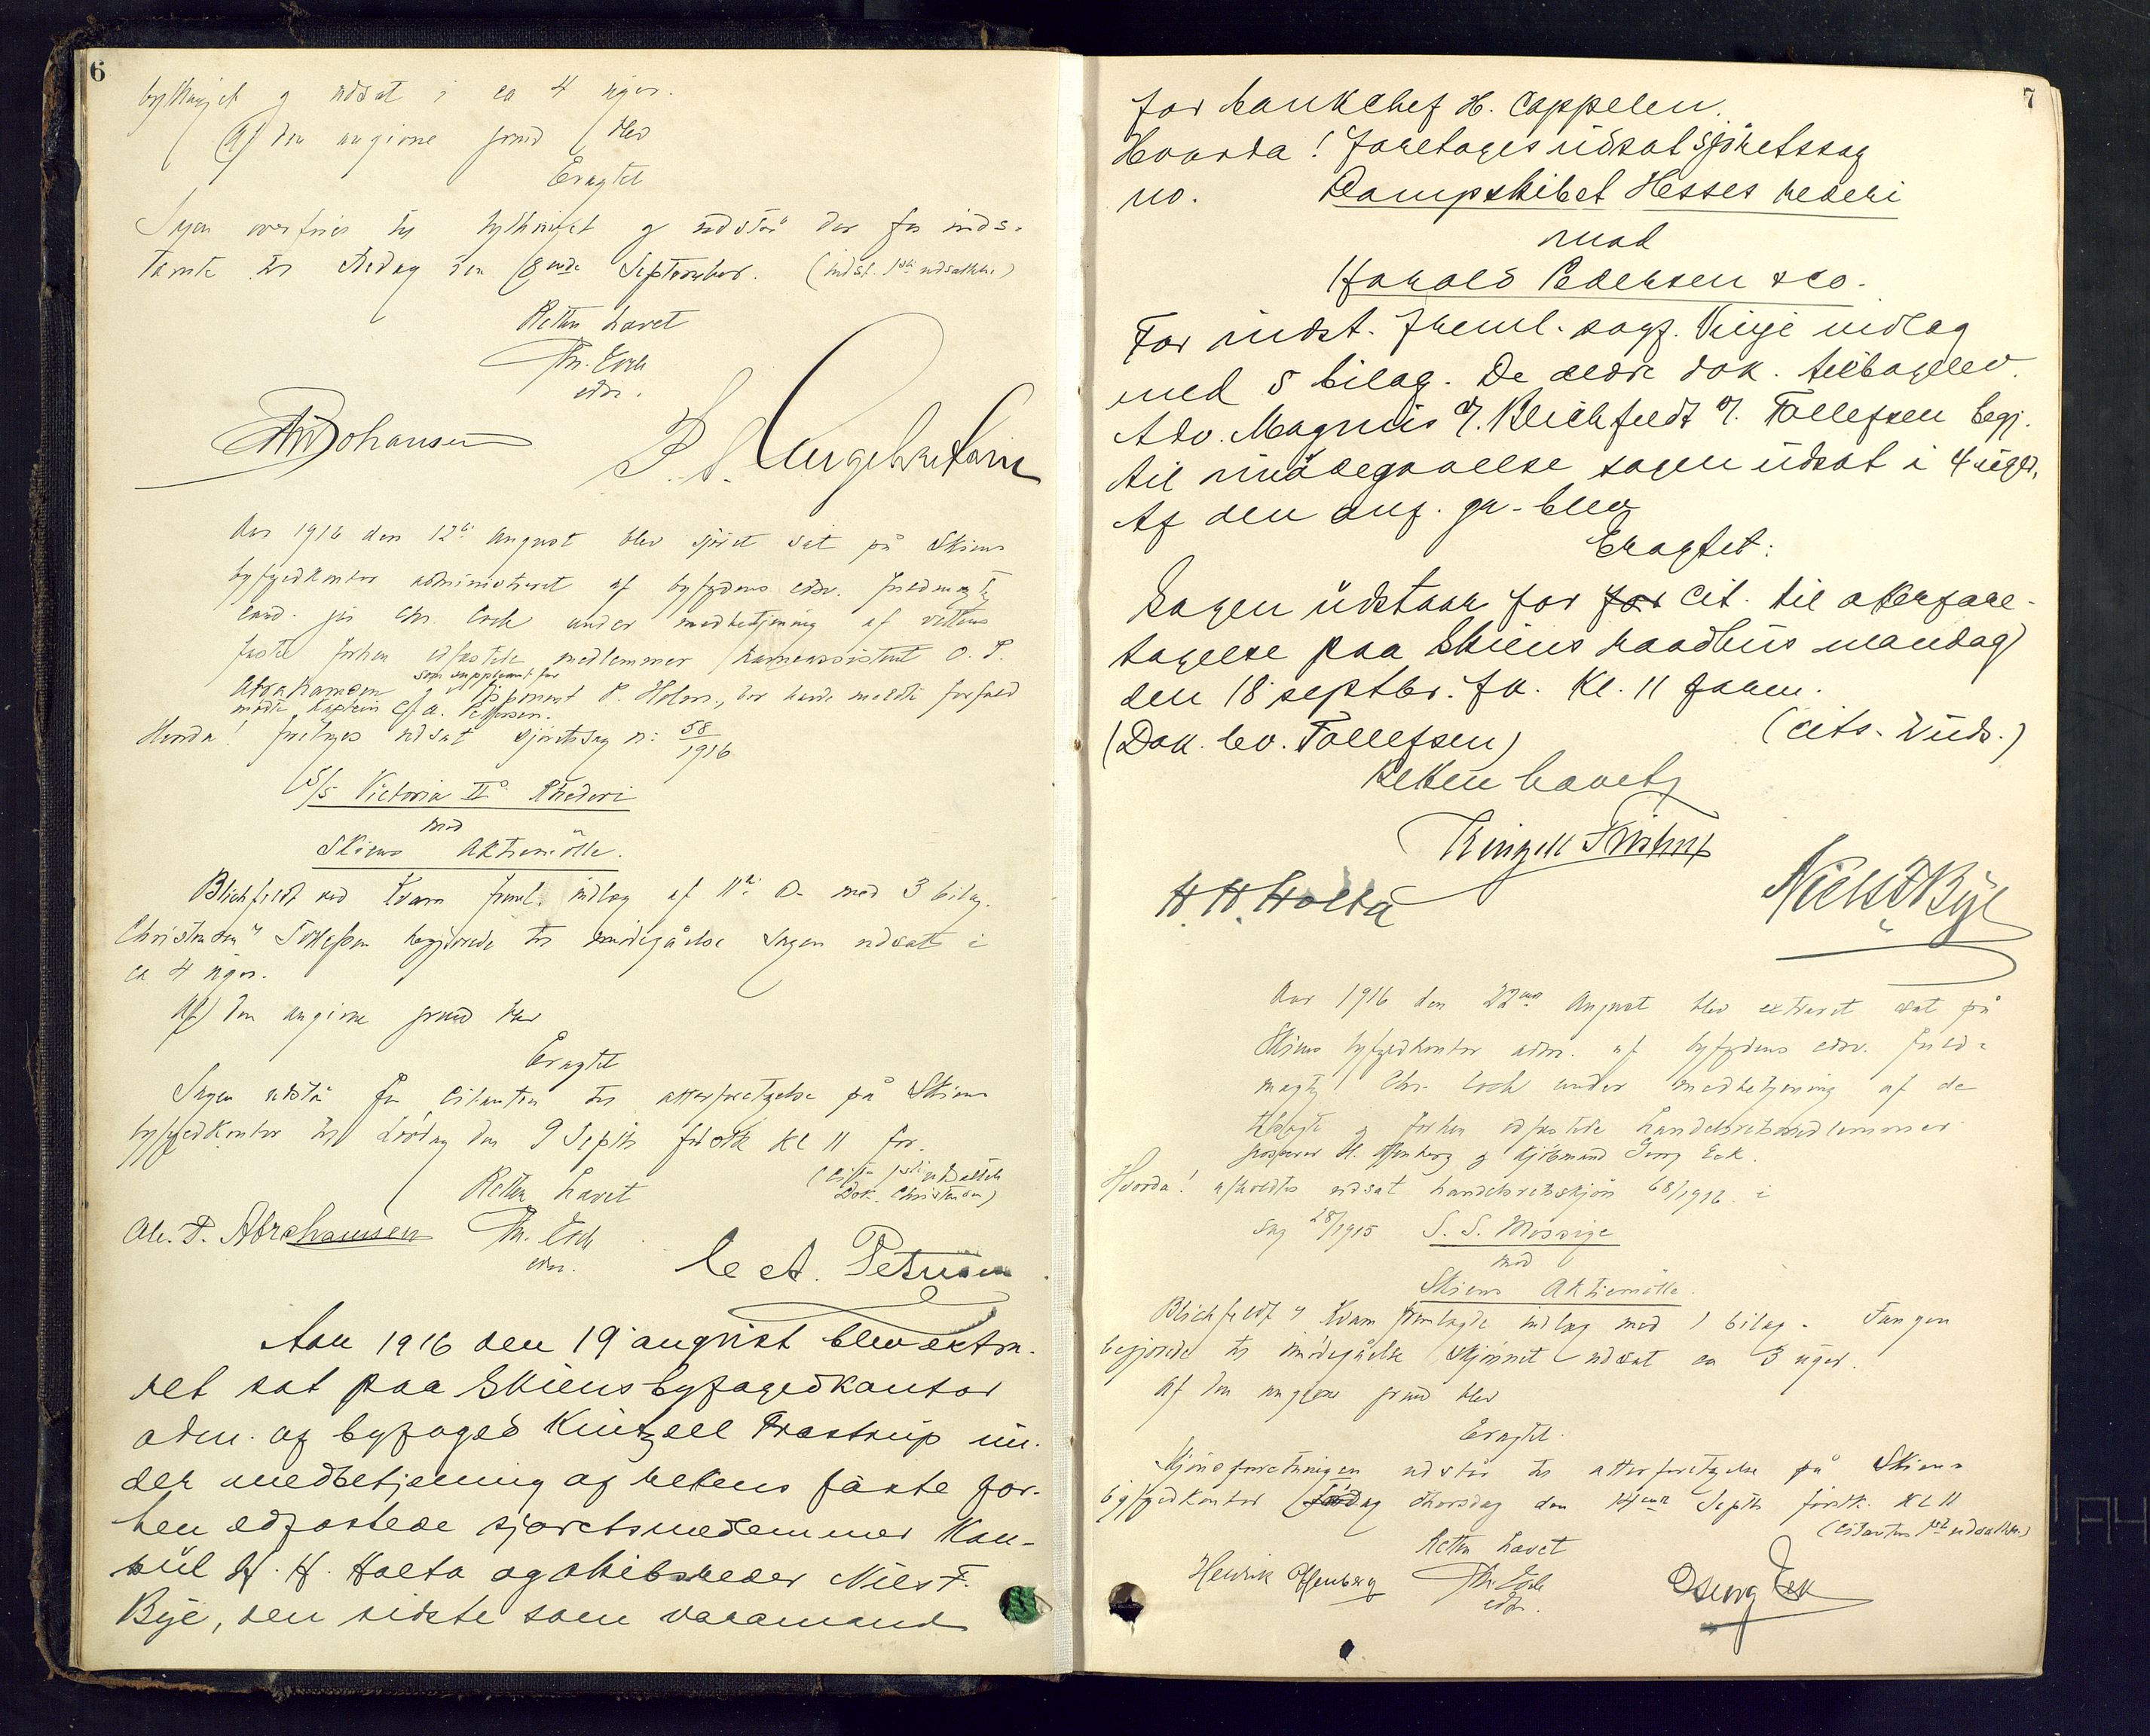 6
bythinget og udsat i ca 4 uger.
Af den angivne grund blev
Eragtet
Sagen overføres til bythinget og udstår der for inds-
tamte til den 18ende September. (indst. udsættelse)
Retten hævet
Chr. Loch
edsv.
Johansen
Aar 1916 den 12te August blev sjøret sat på Skiens
byfogedkontor administreret af byfogdens edsv. fuldmægtig
cand. jur. Chr. Loch under medbetjening af rettens
faste forhen edfæstede medlemmer havneassistent O. P.
Abrahamsen som suppleant for P. Holm, der havde meldt forfald
mødte kaptein C. A. Petersen.
Hvorda! foretoges udsat sjøretssag no: 58/1916
S/S Victoria II's Rhederi
mod
Skiens Aktiemölle.
Blichfeldt ved Kvam freml. indlæg af 11te ds. med 3 bilag.
Christensen v/ Tollefsen begjærede til imødegåelse Sagen udsat i
ca 4 uger.
Af den angivne grund blev
Eragtet
Sagen udstår for Citanten til atterforetagelse på Skiens
byfogedkontor lördag den 9 Septbr førstk kl 11 for.
(Citanten 1ste udsættelse
Dok. Christensen)
Retten hævet
Ole. P. Abrahamsen Chr. Loch
edsv. C A. Petersen
Aar 1916 den 19 august blev extra-
ret sat paa Skiens byfogedkontor
adm. af byfoged Kintzell Frøstrup un-
der medbetjening af rettens faste for-
hen edfæstede sjøretsmedlemmer Kon-
sul H. H. Holta og skibsreder Niels F.
Bye, den sidste som varamand
7
for bankchef H. Cappelen.
Hvorda! foretoges udsat sjøretssag
no. Dampskibet Hesses rederi
mod
Harald Pedersen & co.
For indst. freml. sagf. Vinje indlæg
med 5 bilag. De ældre dok. tilbagelev.
Adv. Magnus v/ Blichfeldt v/ Tollefsen begj.
til imödegaaelse sagen udsat i 4 uger.
Af den anf. gr. blev
Eragtet:
Sagen udstaar for for cit. til atterfore-
tagelse paa Skiens raadhus mandag
den 18 septbr. fk. Kl. 11 form.
(Dok. lev. Tollefsen) (cits. 2 uds.)
Retten hævet
Kintzell Frøstrup
H. H. Holta Niels F Bye
Aar 1916 den 22nen August blev extraret sat på
Skiens byfogedkontor adm. af byfogdens edsv. fuld-
mægtig Chr. Loch under medbetjening af de
tilsagte og forhen edfæstede handelsretsmedlemmer
grosserer H. Offenberg og kjöbmand Georg Eek.
Hvorda! afholdtes udsat handelsretsskjön 68/1916 i
sag 28/1915 S. S. Mossige
mod
Skiens Aktiemölle.
Blichfeldt v/ Kvam fremlagde indlæg med 1 bilag. Tangen
begjærede til imødegåelse skjønnet udsat ca 3 uger.
Af den angivne grund blev
Eragtet.
Skjønsforretningen udstår til atterforetagelse på Skiens
byfogedkontor thorsdag den 14nde Septbr førstk. Kl 11
(Citantens 1ste udsættelse)
Retten hævet
Henrik Offenberg Chr. Loch
edsv. Georg Eek